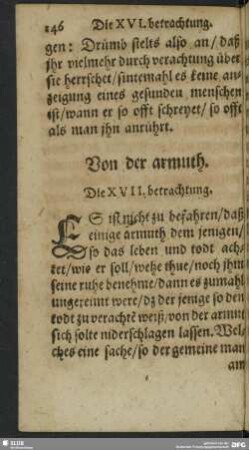 146 Die XVI. betrachtung.
gen: Drümb stelts also an/ daß
jhr vielmehr durch verachtung über
sie herrschet/ sintemahl es keine an-
zeigung eines gesunden menschen
ist/ wann er so offt schreyet/ so offt
als man jhn anrührt.
Von der armuth.
Die XVII. betrachtung.
ES ist nicht zu befahren/ daß
einige armuth dem jenigen/
so das leben und todt ach-
tet/ wie er soll/ wehe thue/ noch jhm
seine ruhe benehme/ dann es zumahl
ungereimt were/ dz der jenige so den
todt zu verachtē weiß/ von der armut
sich solte niderschlagen lassen. Wel-
ches eine sache/ so der gemeine man
am
SLUB
DFG